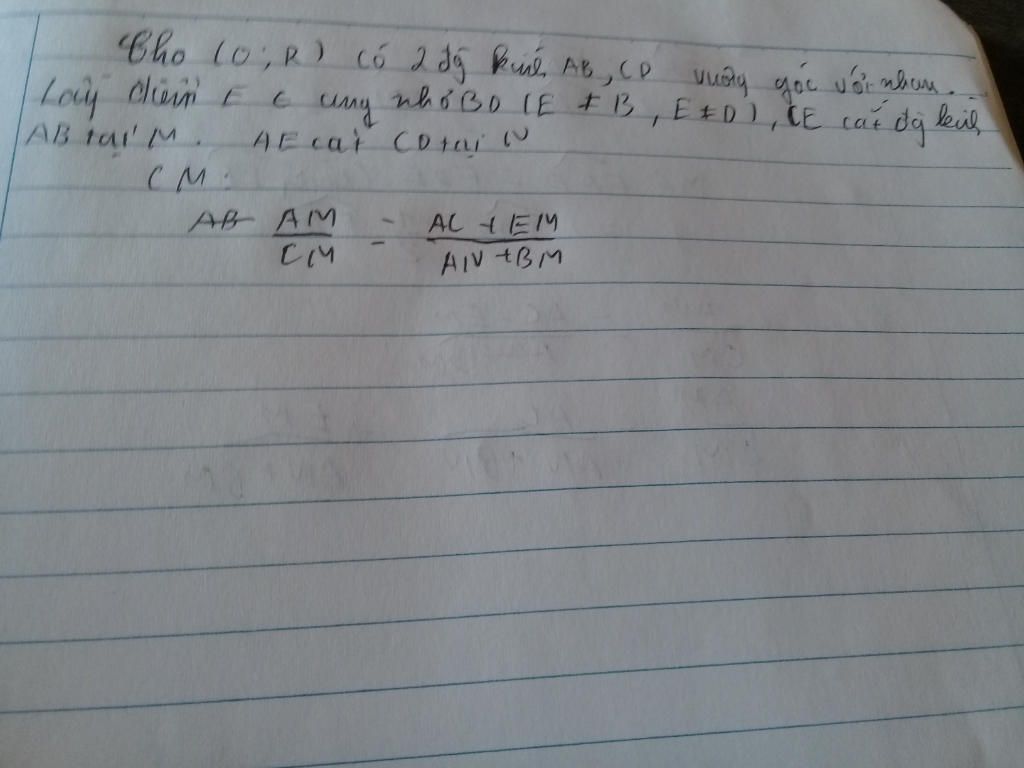 Cho (O; R) có 2 đg kính AB, CD vuông góc với nhau.
Lấy điểm E ∈ cung nhỏ BD (E ≠ B, E ≠ D), CE cắt đg kính
AB tại M. AE cắt CD tại N
CM:
AB AM/CM = AC + EM/AN + BM